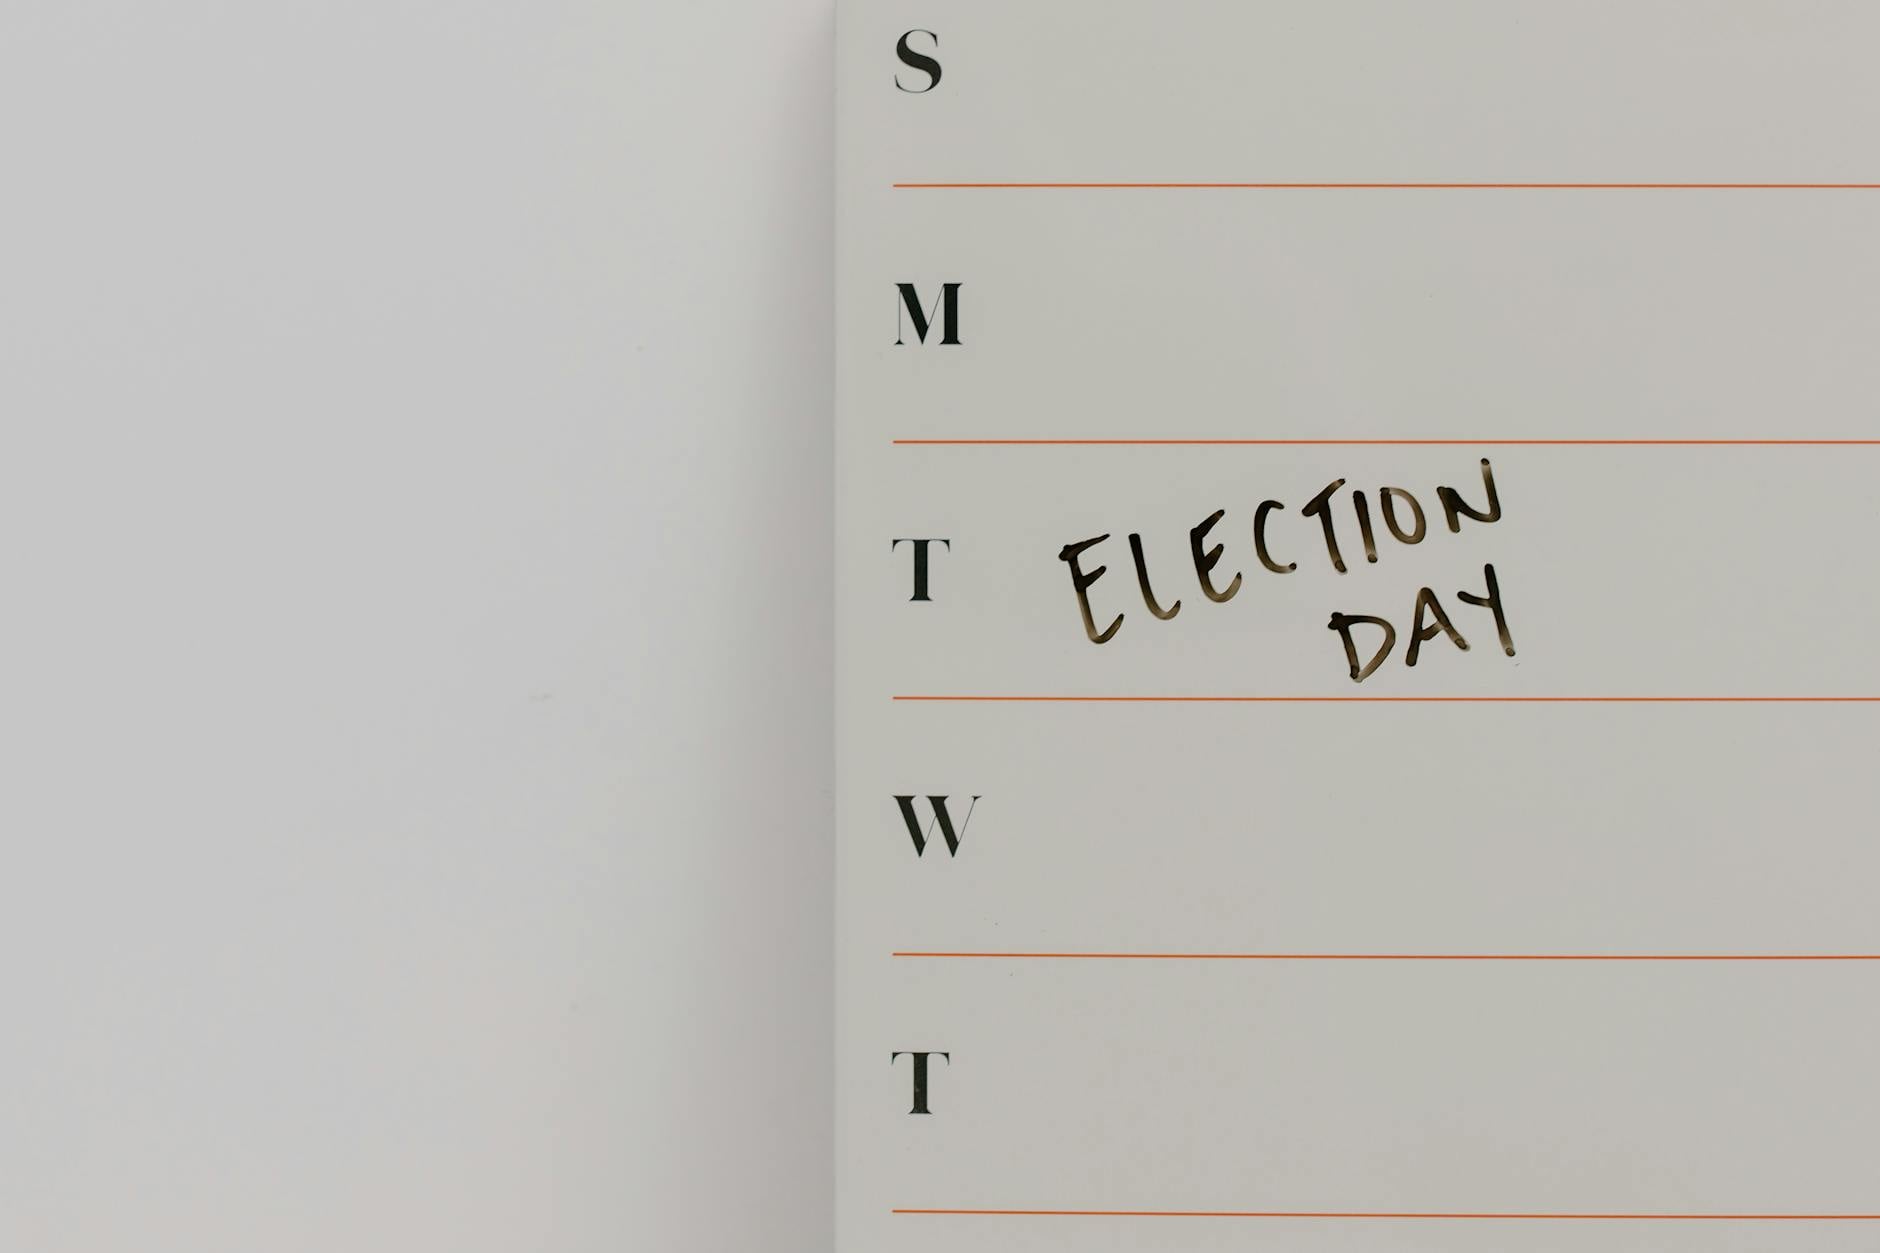 S
M
T
ELECTION
DAY
W
T